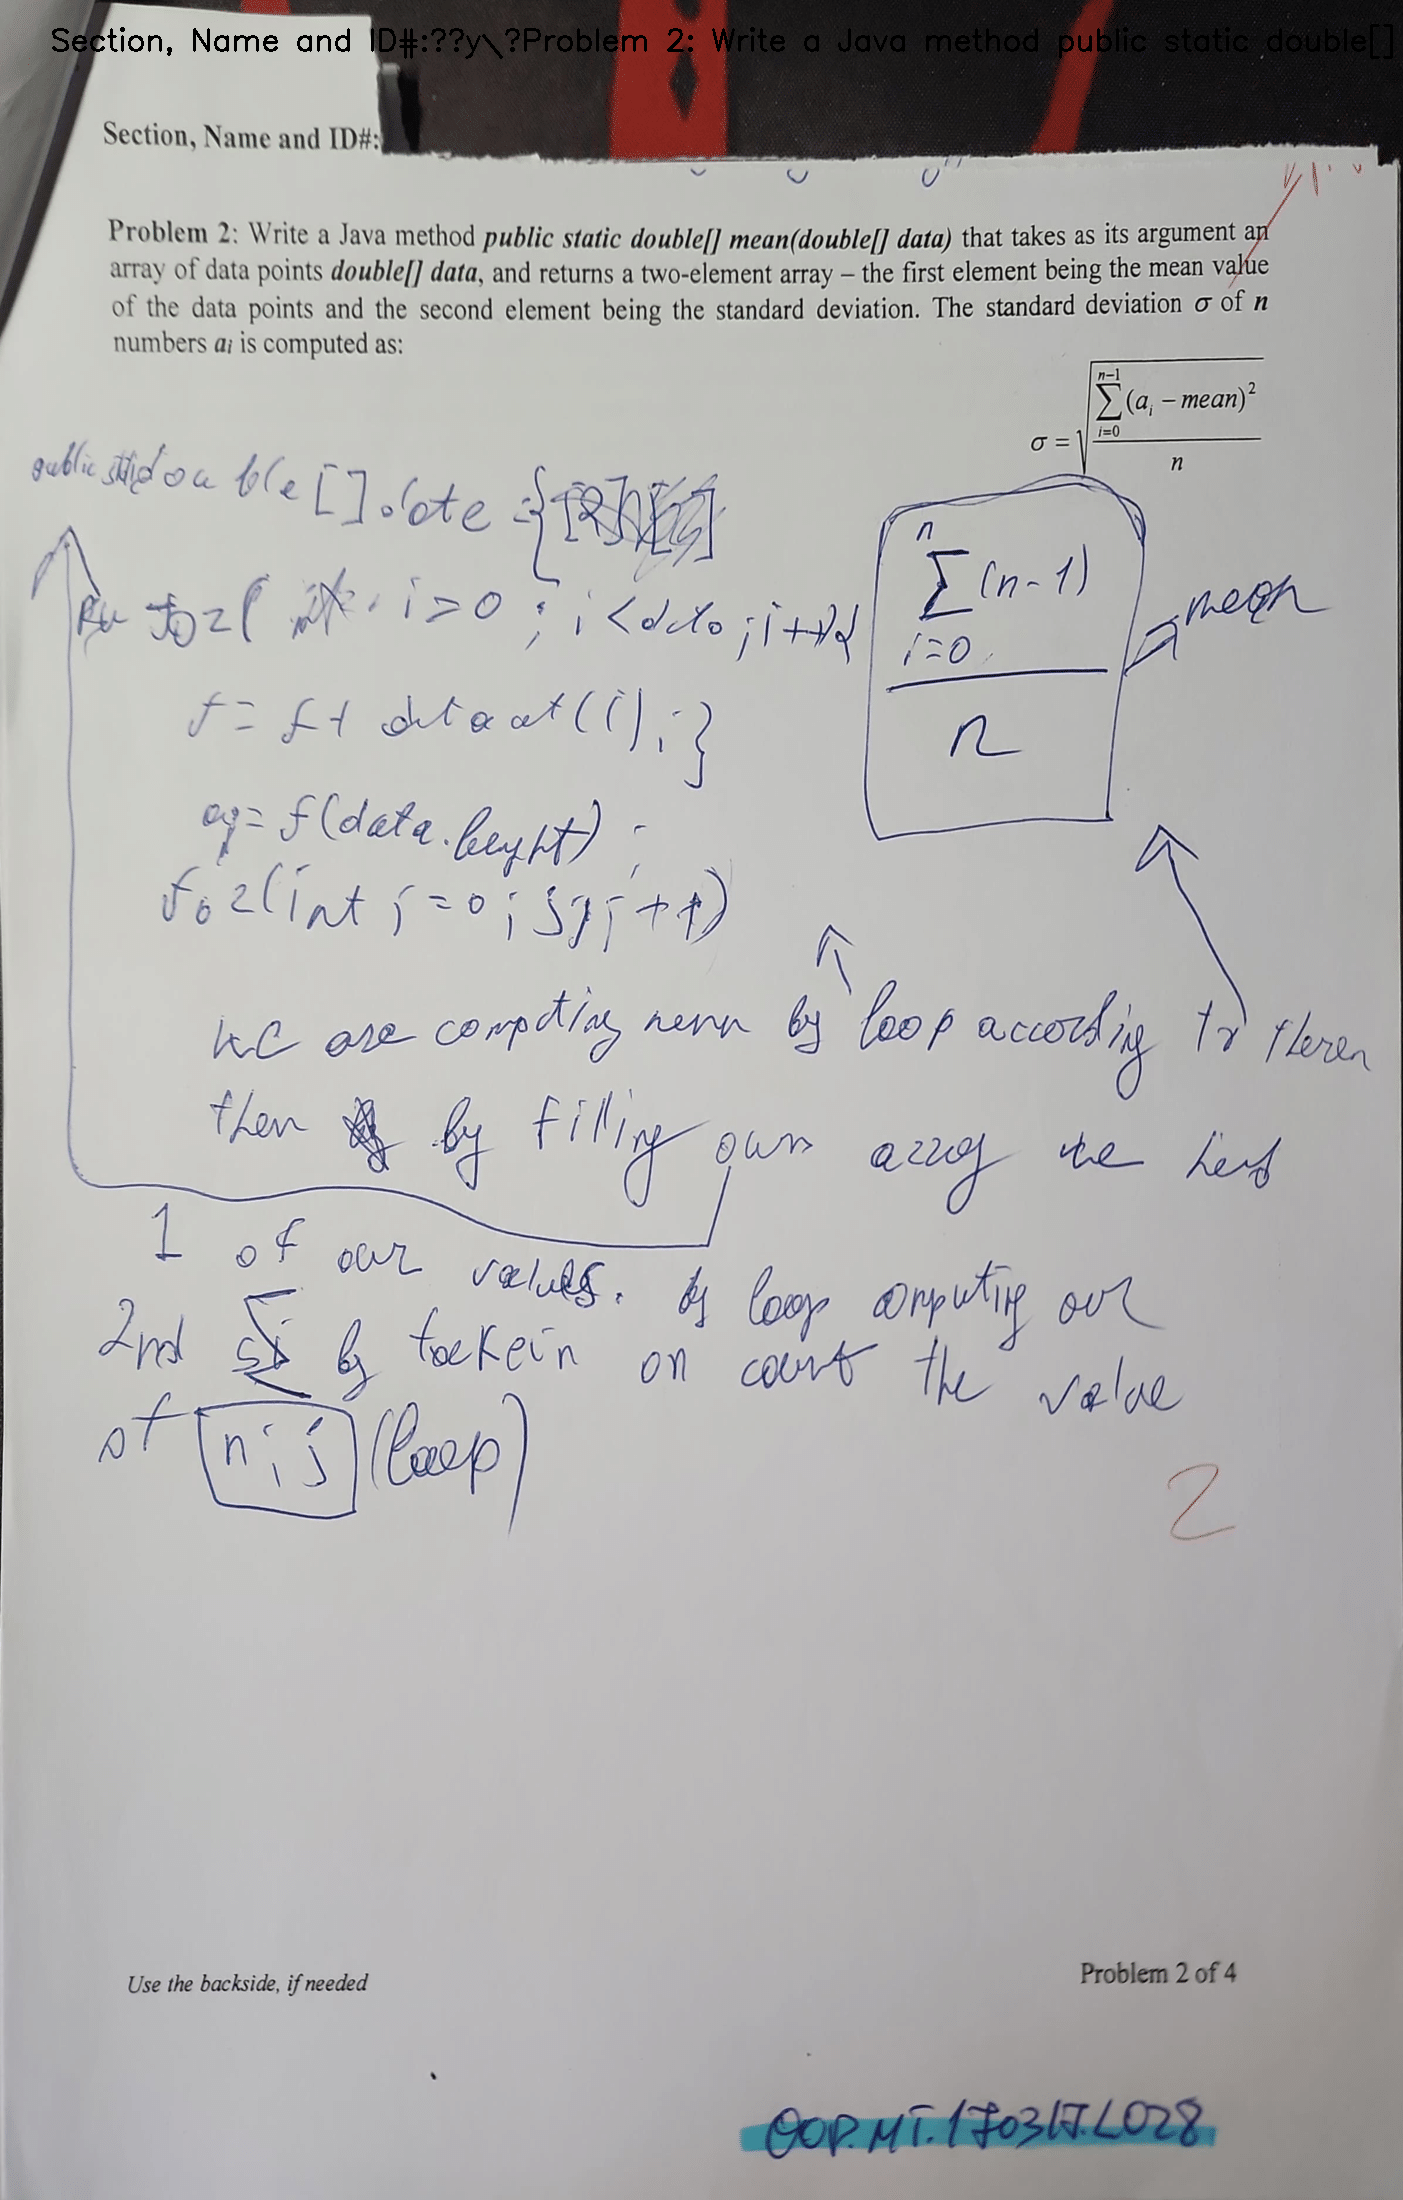 Section, Name and ID#:??y\?Problem 2: Write a Java method public static double[]
Section, Name and ID#:
Problem 2: Write a Java method public static double[] mean(double[] data) that takes as its argument an
array of data points double[] data, and returns a two-element array – the first element being the mean value
of the data points and the second element being the standard deviation. The standard deviation σ of n
numbers ai is computed as:
σ = √(∑(ai – mean)² / n) n–1 i=0
public double[]
i=0 ; i <data ; i++
n
∑ (n-1)
i=0
n
mean
f = f + data at(i) ; }
= f(data.lenght) ;
for(int j=0 ; j++)
we are computing mean by loop according to
then by filling our array the
1 of our values. by loop computing our
2nd ∑ by on count the value
of n i j (loop)
2
Use the backside, if needed
Problem 2 of 4
OOP.MT.170317.L028